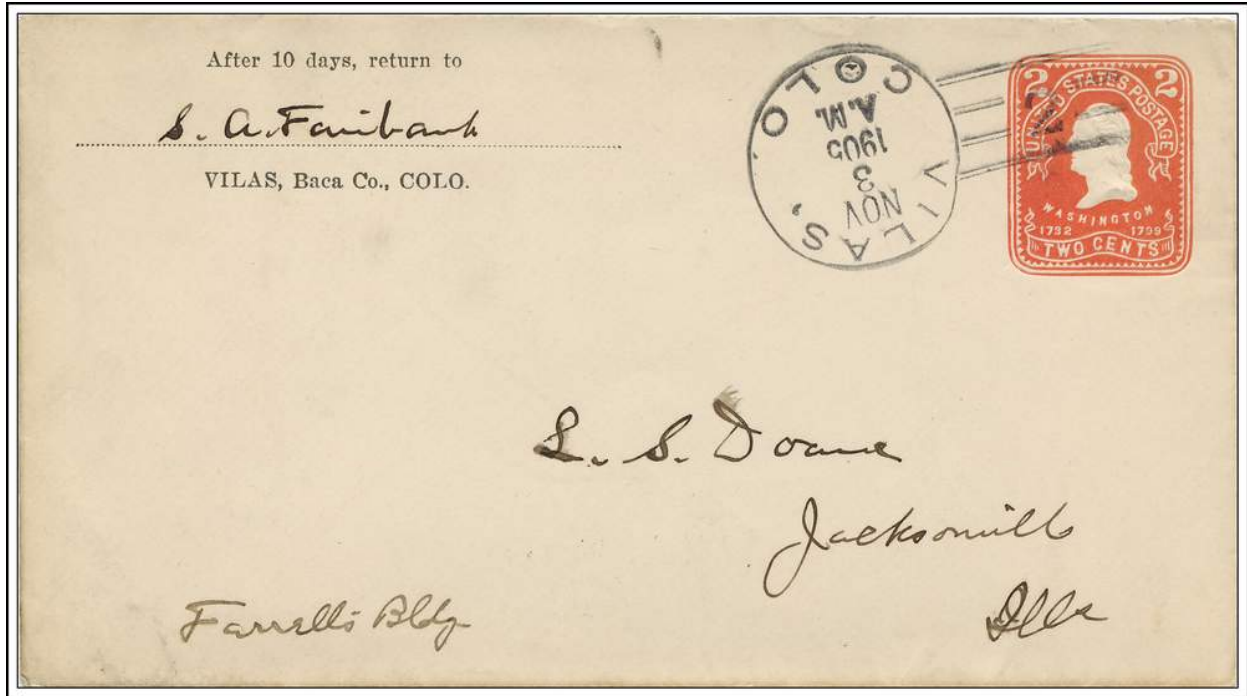 After 10 days, return to
S. A. Fairbank
VILAS, Baca Co., COLO.
VILAS, COLO.
NOV
3
1905
A.M.
2 2
UNITED STATES POSTAGE
WASHINGTON
1732 1799
TWO CENTS
L. S. Doane
Jacksonville
Ills
Farrells Bldg